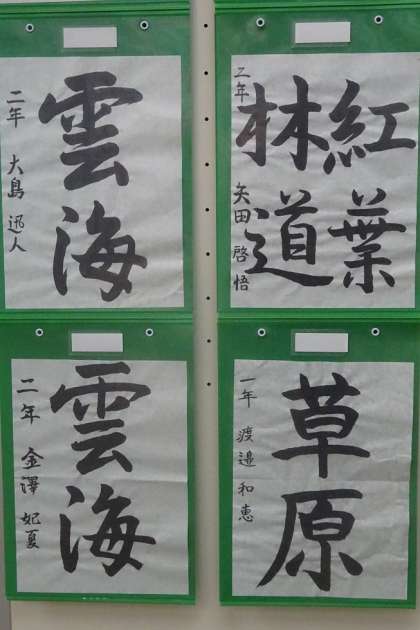 紅葉
林道
二年 矢田 啓悟
雲海
二年 大島 迅人
草原
一年 渡邉 和恵
雲海
二年 金澤 妃夏